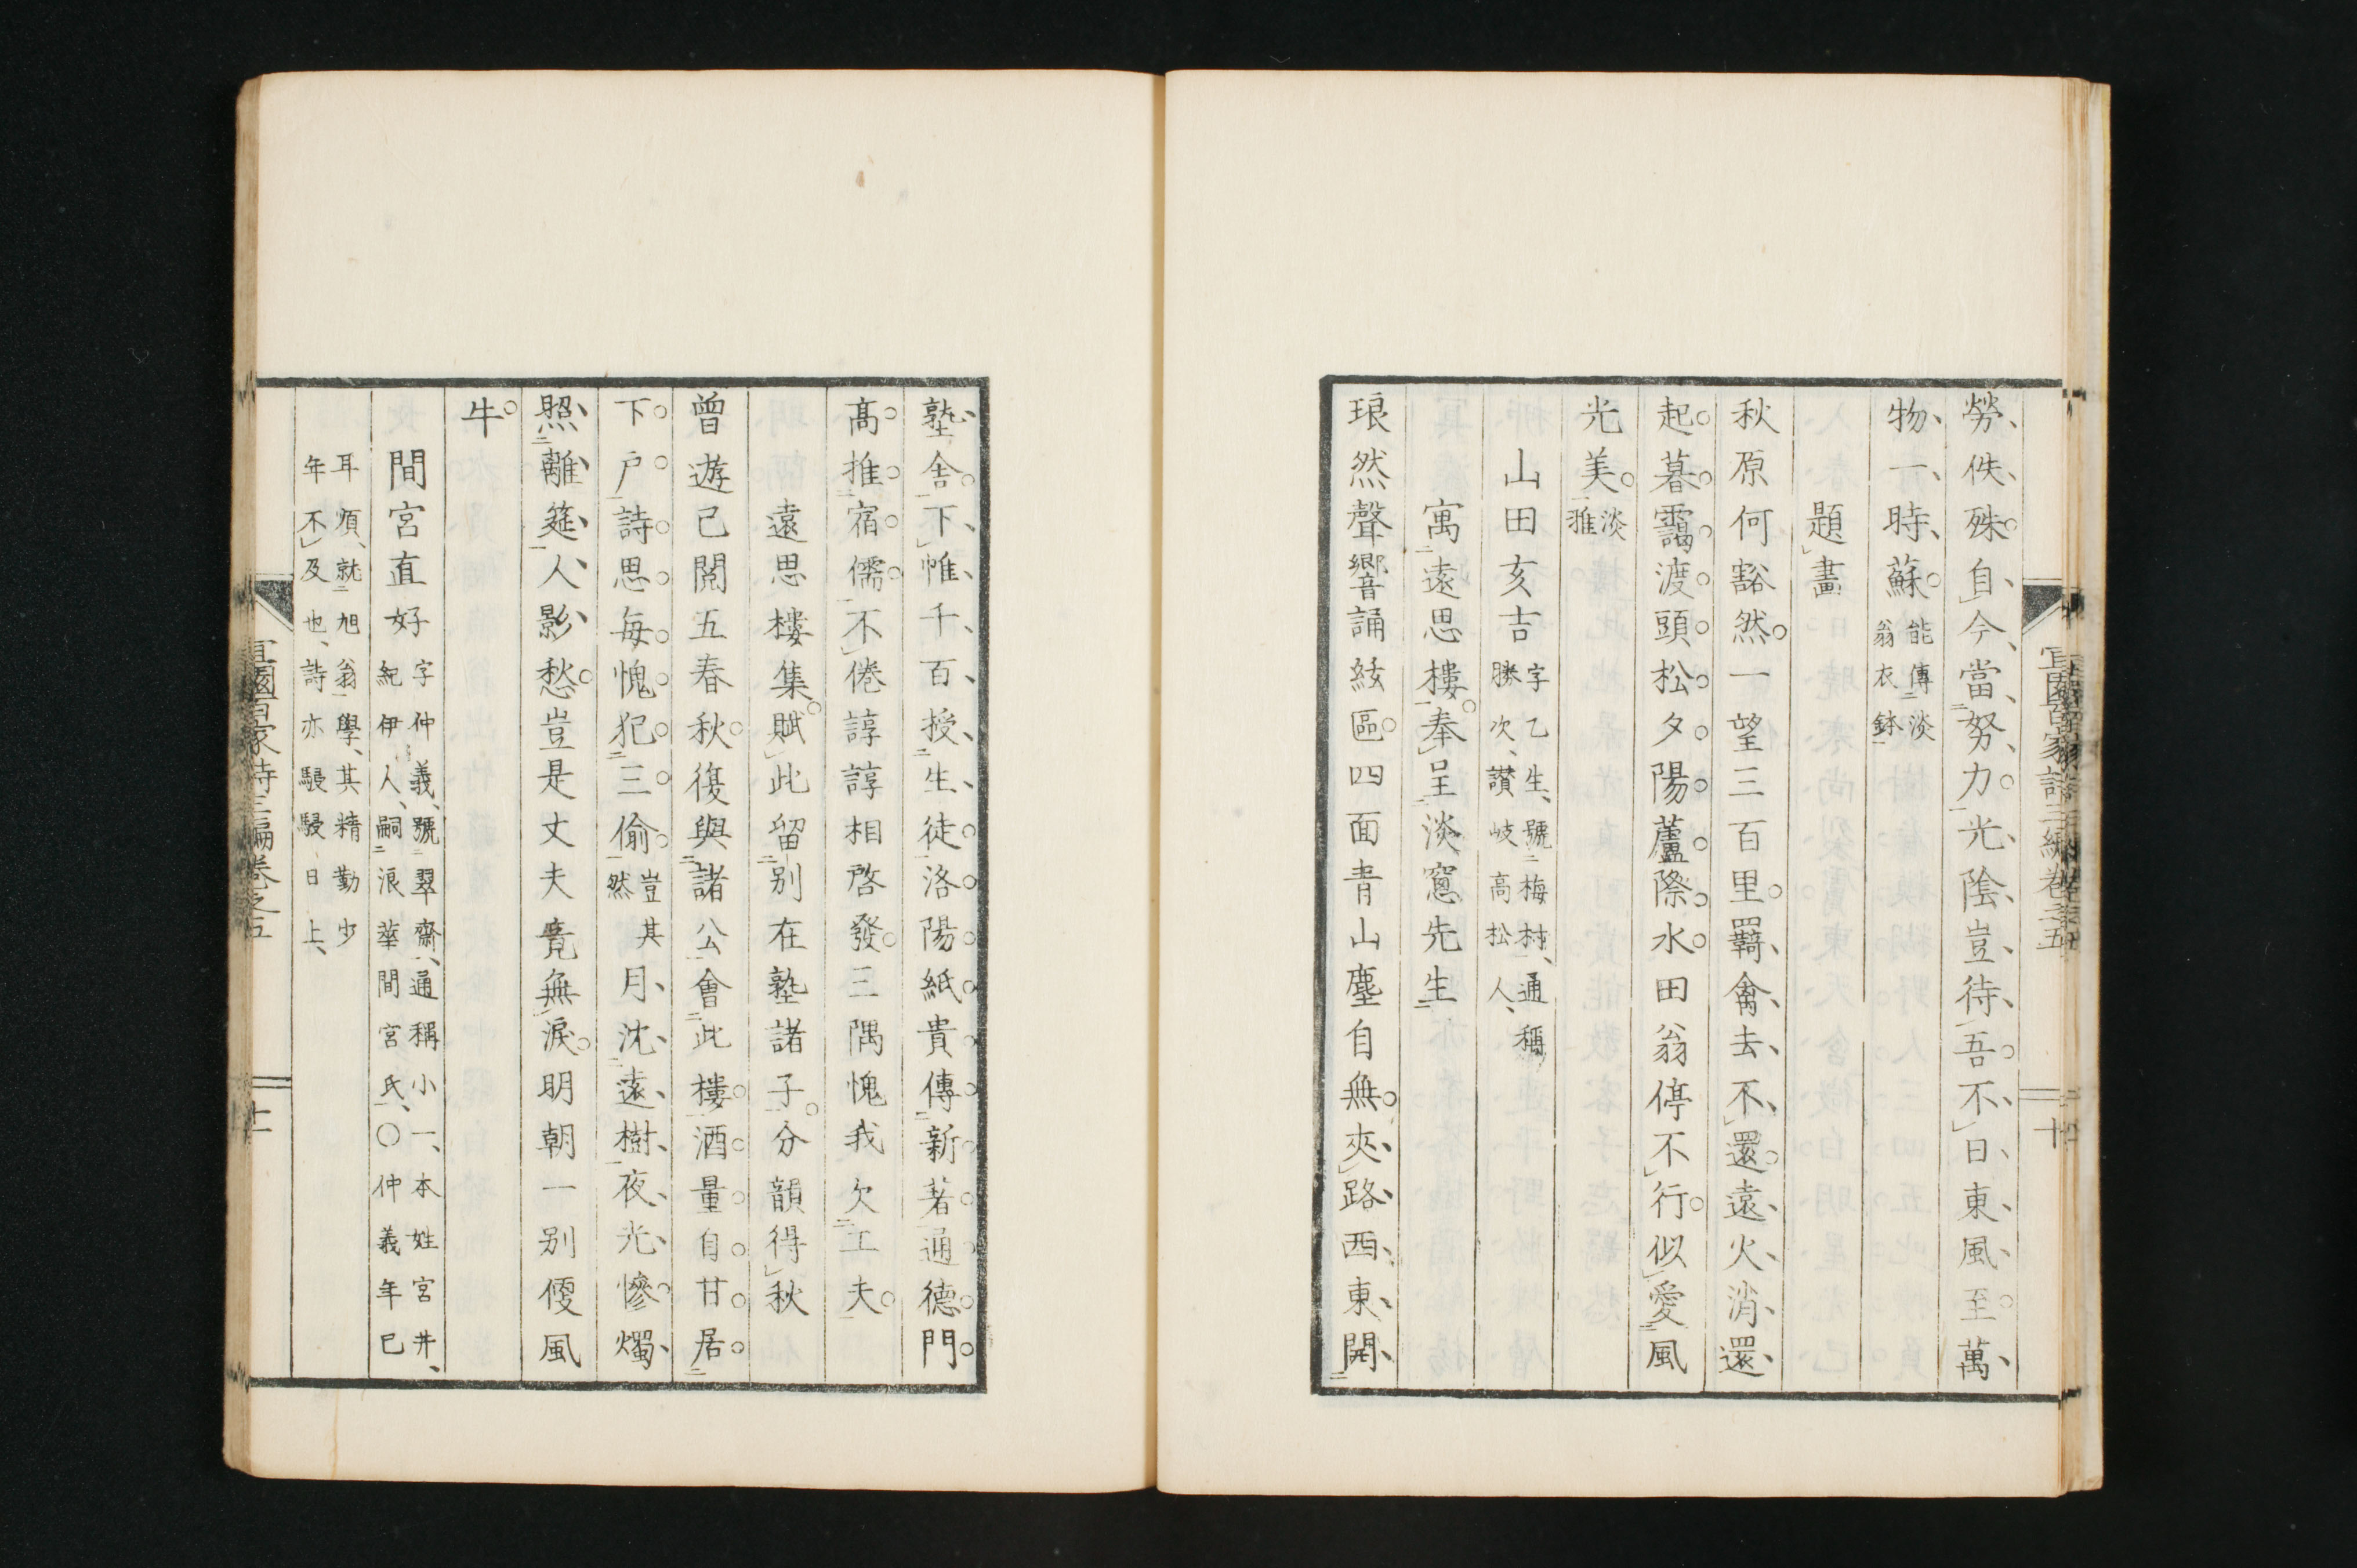 勞佚殊自今當努力光陰豈待吾不日東風至萬
物一時蘇能傳淡翁衣鉢
題畫
秋原何豁然一望三百里羇禽去不還遠火消還
起暮靄渡頭松夕陽蘆際水田翁停不行似愛風
光美淡雅
山田亥吉字乙生、號梅村、通稱勝次、讃岐高松人、
寓遠思樓奉呈淡窻先生
琅然聲響誦絃區四面青山塵自無夾路西東開
塾舍下帷千百授生徒洛陽紙貴傳新著通德門
高推宿儒不倦諄諄相啓發三隅愧我欠工夫
遠思樓集賦此留別在塾諸子分韻得秋
曾遊已閲五春秋復與諸公會此樓酒量自甘居
下戶詩思每愧犯三偷豈其然月沈遠樹夜光慘燭
照離筵人影愁豈是丈夫竟無淚明朝一別傻風
牛
間宮直好字仲義、號翠齋、通稱小一、本姓宮井、紀伊人、嗣浪華間宮氏、〇仲義年已
耳順、就旭翁學、其精勤少年不及也、詩亦駸駸日上、
宜園百家詩三編卷之五
十一